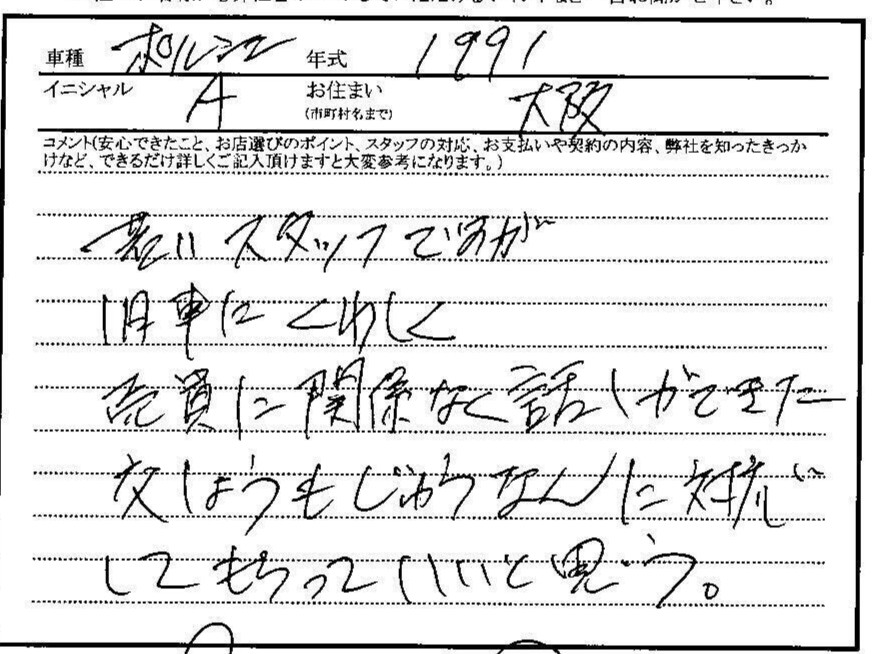 車種 ポルシェ 年式 1991
イニシャル A お住まい 大阪
(市町村名まで)
コメント(安心できたこと、お店選びのポイント、スタッフの対応、お支払いや契約の内容、弊社を知ったきっか
けなど、できるだけ詳しくご記入頂けますと大変参考になります。)
若いスタッフですが
旧車にくわしく
売買に関係なく話しができた
交しょうもじゅうなんに対応
してもらっていいと思う。